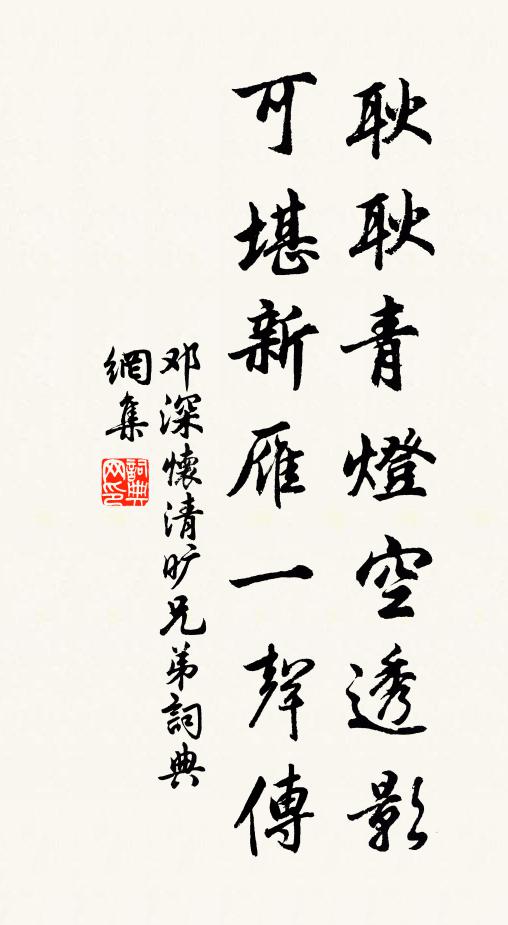 耿耿青燈空透影
可堪新雁一聲傳
邓深懷清旷兄弟詞典
網集
詞典
网印